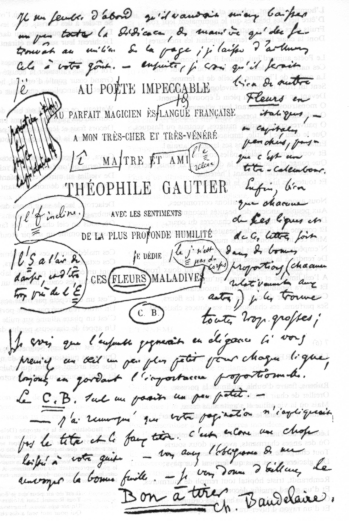 Il me semble d'abord qu'il vaudrait mieux baisser
un peu toute la dédicace, de manière qu'elle se
trouvât au milieu de la page; je laisse d'ailleurs
cela à votre goût. — ensuite, je crois qu'il serait
bien de mettre
Fleurs en
italiques, —
en capitales
penchées, puis-
que c'est un
titre-calembour.
Enfin, bien
que chacune
de ces lignes et
de ces lettres soit
dans de bonnes
proportions (chacune
relativement aux
autres,) je les trouve
toutes trop grosses;
AU POËTE IMPECCABLE
AU PARFAIT MAGICIEN ÈS LANGUE FRANÇAISE
A MON TRÈS-CHER ET TRÈS-VÉNÉRÉ
MAITRE ET AMI
THÉOPHILE GAUTIER
AVEC LES SENTIMENTS
DE LA PLUS PROFONDE HUMILITÉ
JE DÉDIE
CES FLEURS MALADIVES
C B
l'f incline.
l'S a l'air de
danser, et est
trop près de l'E
Je crois que l'ensemble gagnerait en élégance si vous
preniez un œil un peu plus petit pour chaque ligne,
toujours en gardant l'importance proportionnelle.
Le C.B. seul me paraît un peu petit. —
— J'ai remarqué que votre pagination n'impliquait
pas le titre et le faux titre. c'est encore une chose
laissée à votre guise. — vous aurez l'obligeance de me
renvoyer la bonne feuille. — Je vous donne d'ailleurs, le
Bon à tirer
Ch. Baudelaire.